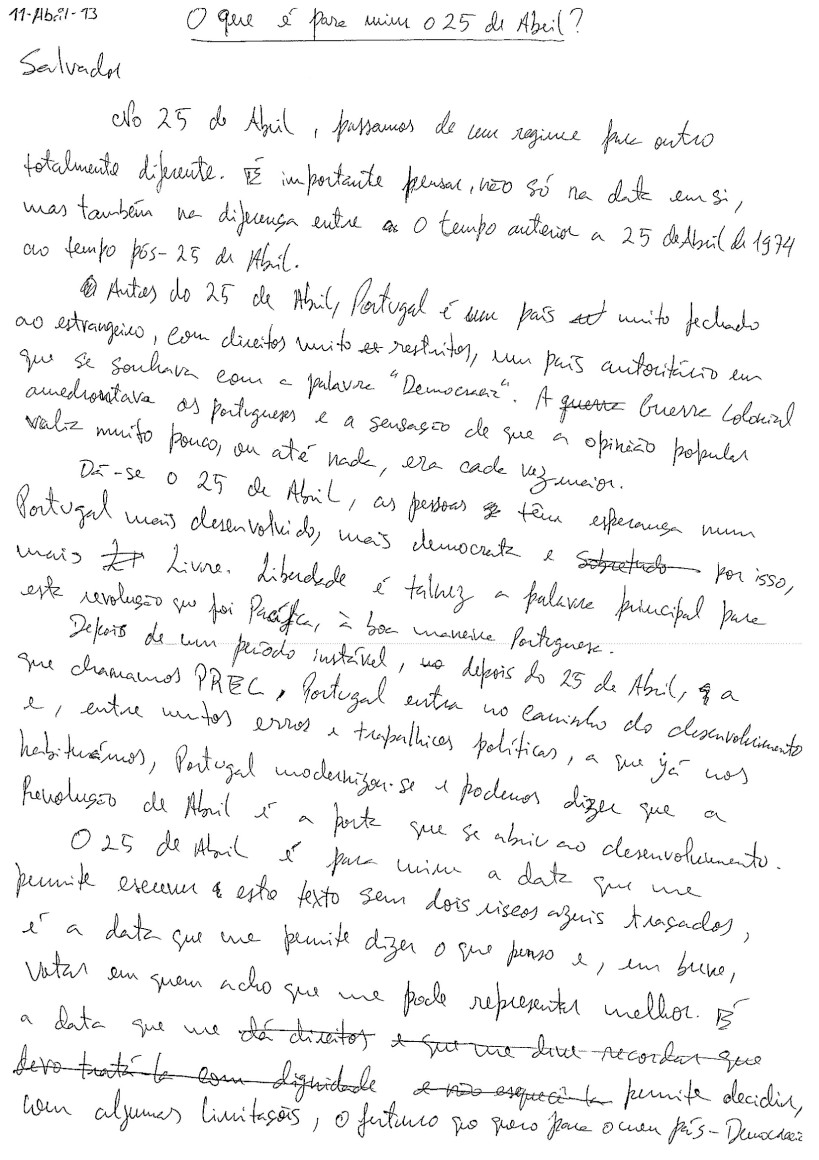 11-Abril-13
O que é para mim o 25 de Abril?
Salvador
No 25 de Abril, passamos de um regime para outro
totalmente diferente. É importante pensar, não só na data em si,
mas também na diferença entre o tempo anterior a 25 de Abril de 1974
ao tempo pós-25 de Abril.
Antes do 25 de Abril, Portugal é um país muito fechado
ao estrangeiro, com direitos muito restritos, um país autoritário em
que se sonhava com a palavra "Democracia". A guerra Guerra Colonial
amedrontava os portugueses e a sensação de que a opinião popular
valia muito pouco, ou até nada, era cada vez maior.
Dá-se o 25 de Abril, as pessoas têm esperança num
Portugal mais desenvolvido, mais democrata e sobretudo por isso,
mais Livre. Liberdade é talvez a palavra principal para
esta revolução que foi Pacífica, à boa maneira Portuguesa.
Depois de um período instável, no depois do 25 de Abril, a
que chamamos PREC, Portugal entra no caminho do desenvolvimento
e, entre muitos erros e trapalhices políticas, a que já nos
habituámos, Portugal modernizou-se e podemos dizer que a
Revolução de Abril é a porta que se abriu ao desenvolvimento.
O 25 de Abril é para mim a data que me
permite escrever este texto sem dois riscos azuis traçados,
é a data que me permite dizer o que penso e, em breve,
votar em quem acho que me pode representar melhor. É
a data que me dá direitos e que me deve recordar que
devo tratá-la com dignidade e não esquecê-la permite decidir,
com algumas limitações, o futuro que quero para o meu país-Democracia